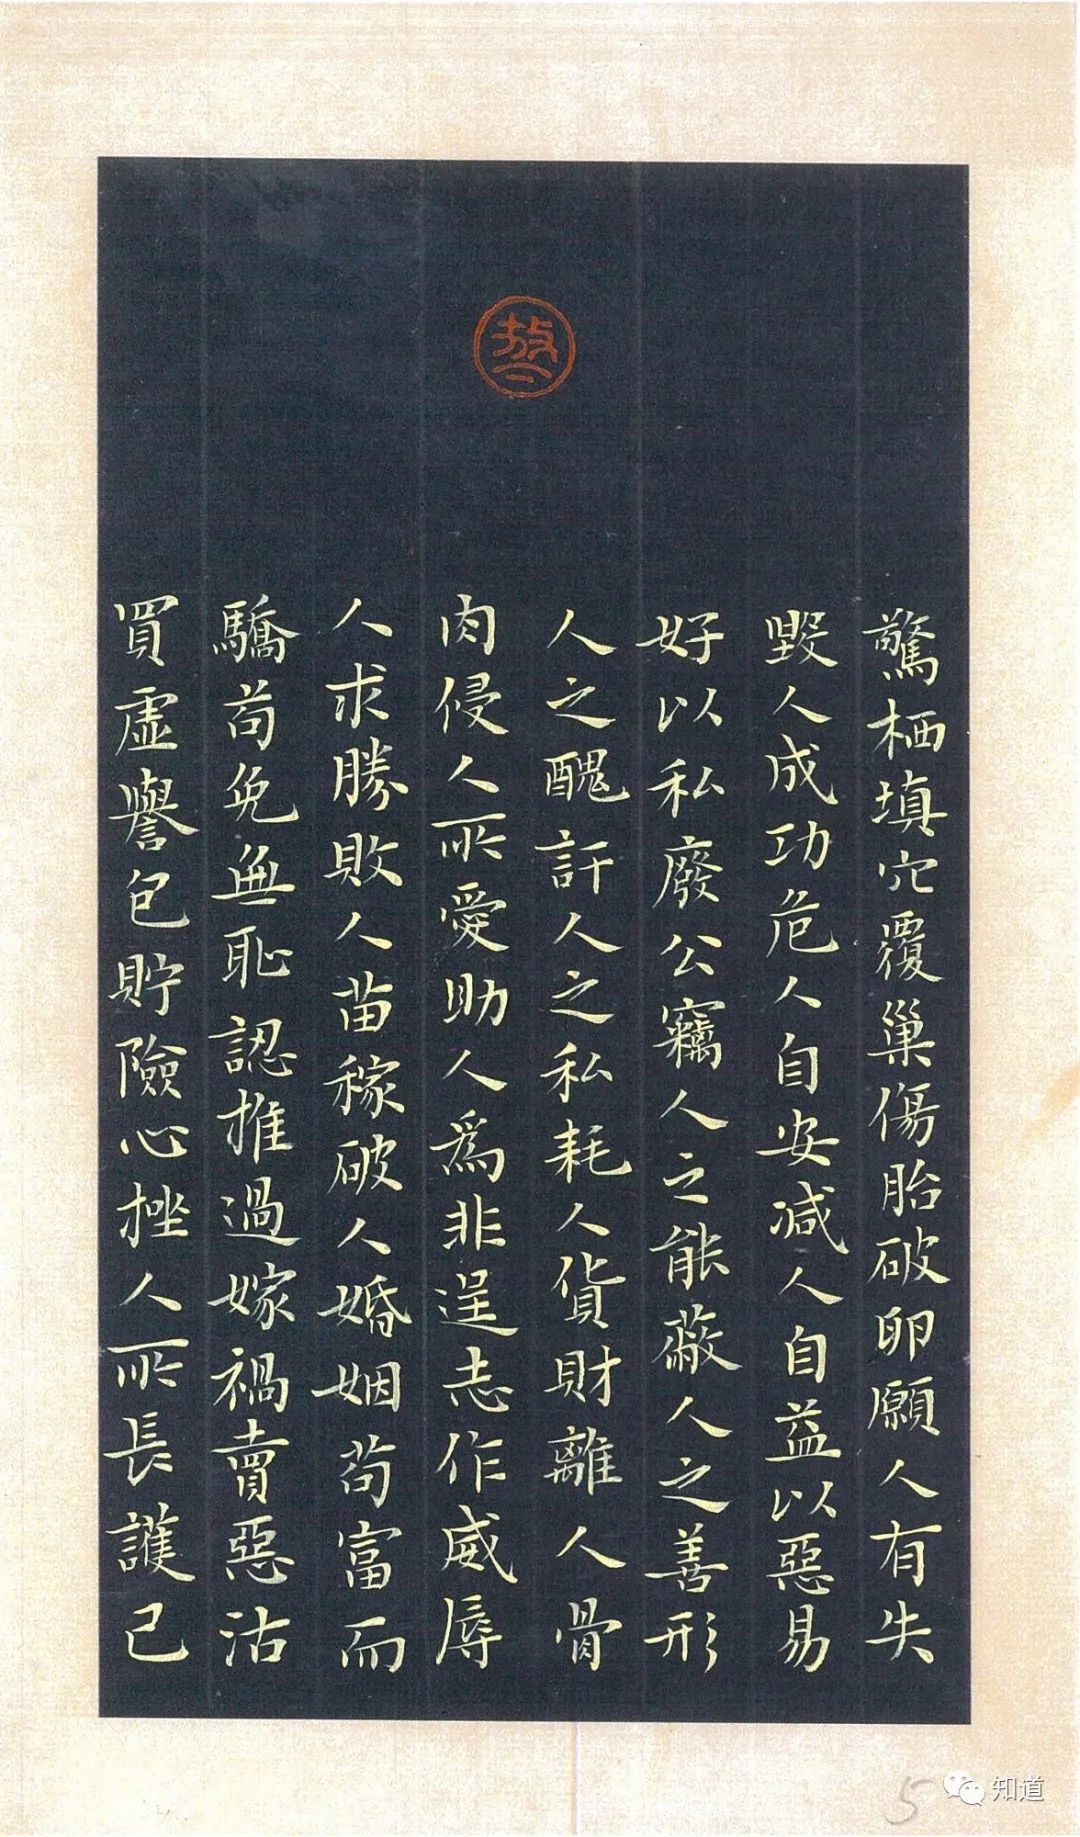 驚栖填穴覆巢傷胎破卵願人有失
毀人成功危人自安減人自益以惡易
好以私廢公竊人之能蔽人之善形
人之醜訐人之私耗人貨財離人骨
肉侵人所愛助人為非逞志作威辱
人求勝敗人苗稼破人婚姻苟富而
驕苟免無恥認推過嫁禍賣惡沽
買虛譽包貯險心挫人所長護己
5
知道